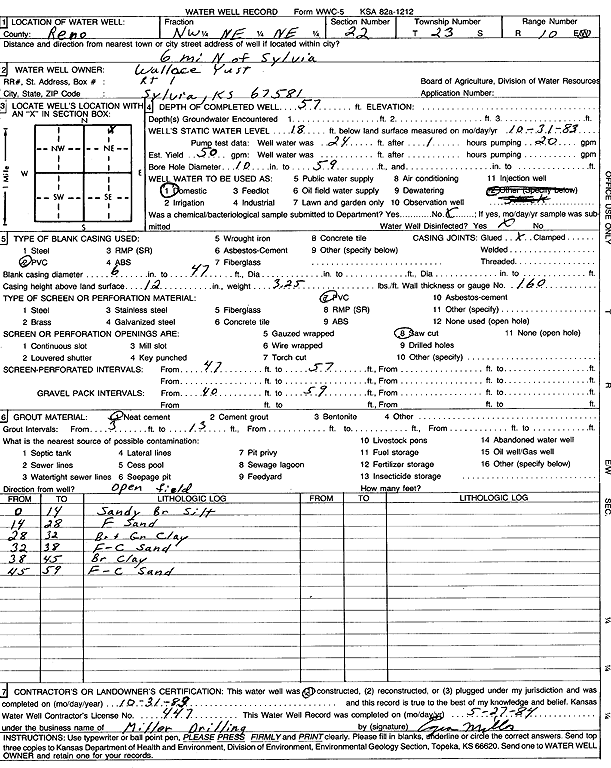 WATER WELL RECORD Form WWC-5 KSA 82a-1212
1 LOCATION OF WATER WELL: Fraction Section Number Township Number Range Number
County: Reno NW ¼ NE ¼ NE ¼ 22 T 23 S R 10 E/W
Distance and direction from nearest town or city street address of well if located within city?
6 mi N of Sylvia
2 WATER WELL OWNER: Wallace Yust
RR#, St. Address, Box # : Rt-1 Board of Agriculture, Division of Water Resources
City, State, ZIP Code : Sylvia, KS 67581 Application Number:
3 LOCATE WELL'S LOCATION WITH AN "X" IN SECTION BOX:
N
X
NW NE
W E
SW SE
S
1 Mile
4 DEPTH OF COMPLETED WELL 57 ft. ELEVATION:
Depth(s) Groundwater Encountered 1. ft. 2. ft. 3. ft.
WELL'S STATIC WATER LEVEL 18 ft. below land surface measured on mo/day/yr 10-31-83
Pump test data: Well water was 24 ft. after 1 hours pumping 20 gpm
Est. Yield 50 gpm: Well water was ft. after hours pumping gpm
Bore Hole Diameter 10 in. to 59 ft., and in. to ft.
WELL WATER TO BE USED AS: 5 Public water supply 8 Air conditioning 11 Injection well
1 Domestic 3 Feedlot 6 Oil field water supply 9 Dewatering 12 Other (Specify below)
2 Irrigation 4 Industrial 7 Lawn and garden only 10 Observation well
Was a chemical/bacteriological sample submitted to Department? Yes No X ; If yes, mo/day/yr sample was submitted
Water Well Disinfected? Yes X No
5 TYPE OF BLANK CASING USED: 5 Wrought iron 8 Concrete tile CASING JOINTS: Glued X Clamped
1 Steel 3 RMP (SR) 6 Asbestos-Cement 9 Other (specify below) Welded
2 PVC 4 ABS 7 Fiberglass Threaded
Blank casing diameter 6 in. to 47 ft., Dia in. to ft., Dia in. to ft.
Casing height above land surface 12 in., weight 3.25 lbs./ft. Wall thickness or gauge No. 160
TYPE OF SCREEN OR PERFORATION MATERIAL: 7 PVC 10 Asbestos-cement
1 Steel 3 Stainless steel 5 Fiberglass 8 RMP (SR) 11 Other (specify)
2 Brass 4 Galvanized steel 6 Concrete tile 9 ABS 12 None used (open hole)
SCREEN OR PERFORATION OPENINGS ARE: 5 Gauzed wrapped 8 Saw cut 11 None (open hole)
1 Continuous slot 3 Mill slot 6 Wire wrapped 9 Drilled holes
2 Louvered shutter 4 Key punched 7 Torch cut 10 Other (specify)
SCREEN-PERFORATED INTERVALS: From 47 ft. to 57 ft., From ft. to ft.
From ft. to ft., From ft. to ft.
GRAVEL PACK INTERVALS: From 40 ft. to 59 ft., From ft. to ft.
From ft. to ft., From ft. to ft.
6 GROUT MATERIAL: 1 Neat cement 2 Cement grout 3 Bentonite 4 Other
Grout Intervals: From 3 ft. to 13 ft., From ft. to ft., From ft. to ft.
What is the nearest source of possible contamination: 10 Livestock pens 14 Abandoned water well
1 Septic tank 4 Lateral lines 7 Pit privy 11 Fuel storage 15 Oil well/Gas well
2 Sewer lines 5 Cess pool 8 Sewage lagoon 12 Fertilizer storage 16 Other (specify below)
3 Watertight sewer lines 6 Seepage pit 9 Feedyard 13 Insecticide storage
Direction from well? open field How many feet?
FROM TO LITHOLOGIC LOG FROM TO LITHOLOGIC LOG
0 14 Sandy Br Silt
14 28 F Sand
28 32 Br + Gr Clay
32 38 F-C Sand
38 45 Br Clay
45 59 F-C Sand
7 CONTRACTOR'S OR LANDOWNER'S CERTIFICATION: This water well was (1) constructed, (2) reconstructed, or (3) plugged under my jurisdiction and was
completed on (mo/day/year) 10-31-83 and this record is true to the best of my knowledge and belief. Kansas
Water Well Contractor's License No. 447 This Water Well Record was completed on (mo/day/yr) 5-27-84
under the business name of Miller Drilling by (signature)
INSTRUCTIONS: Use typewriter or ball point pen, PLEASE PRESS FIRMLY and PRINT clearly. Please fill in blanks, underline or circle the correct answers. Send top
three copies to Kansas Department of Health and Environment, Division of Environment, Environmental Geology Section, Topeka, KS 66620. Send one to WATER WELL
OWNER and retain one for your records.
OFFICE USE ONLY
T
R
E/W
SEC.
¼
¼
¼